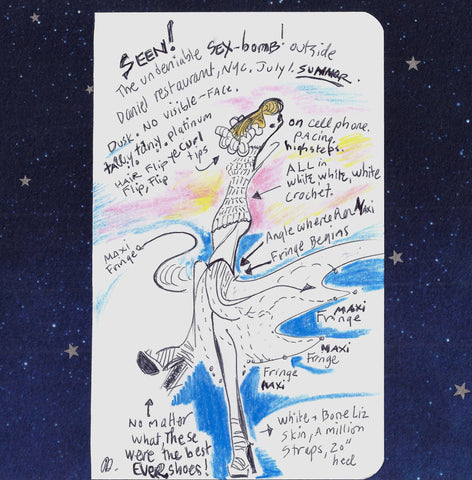 SEEN!
The undeniable SEX-bomb! outside
Daniel restaurant, NYC. July 1. SUMMER.
Dusk. No visible-Face.
tally, tony, platinum
HAIR Flip + curl
Flip, Flip tips
on cellphone.
pacing
highsteps.
ALL in
white, white, white
crochet.
Angle where Maxi
Fringe Begins
MAXI
Fringe
MAXI
Fringe
MAXI
Fringe
Fringe
MAXI
No matter
what, These
were the best
EVER shoes!
white + Bone Liz
Skin, A million
Straps, 20"
heel